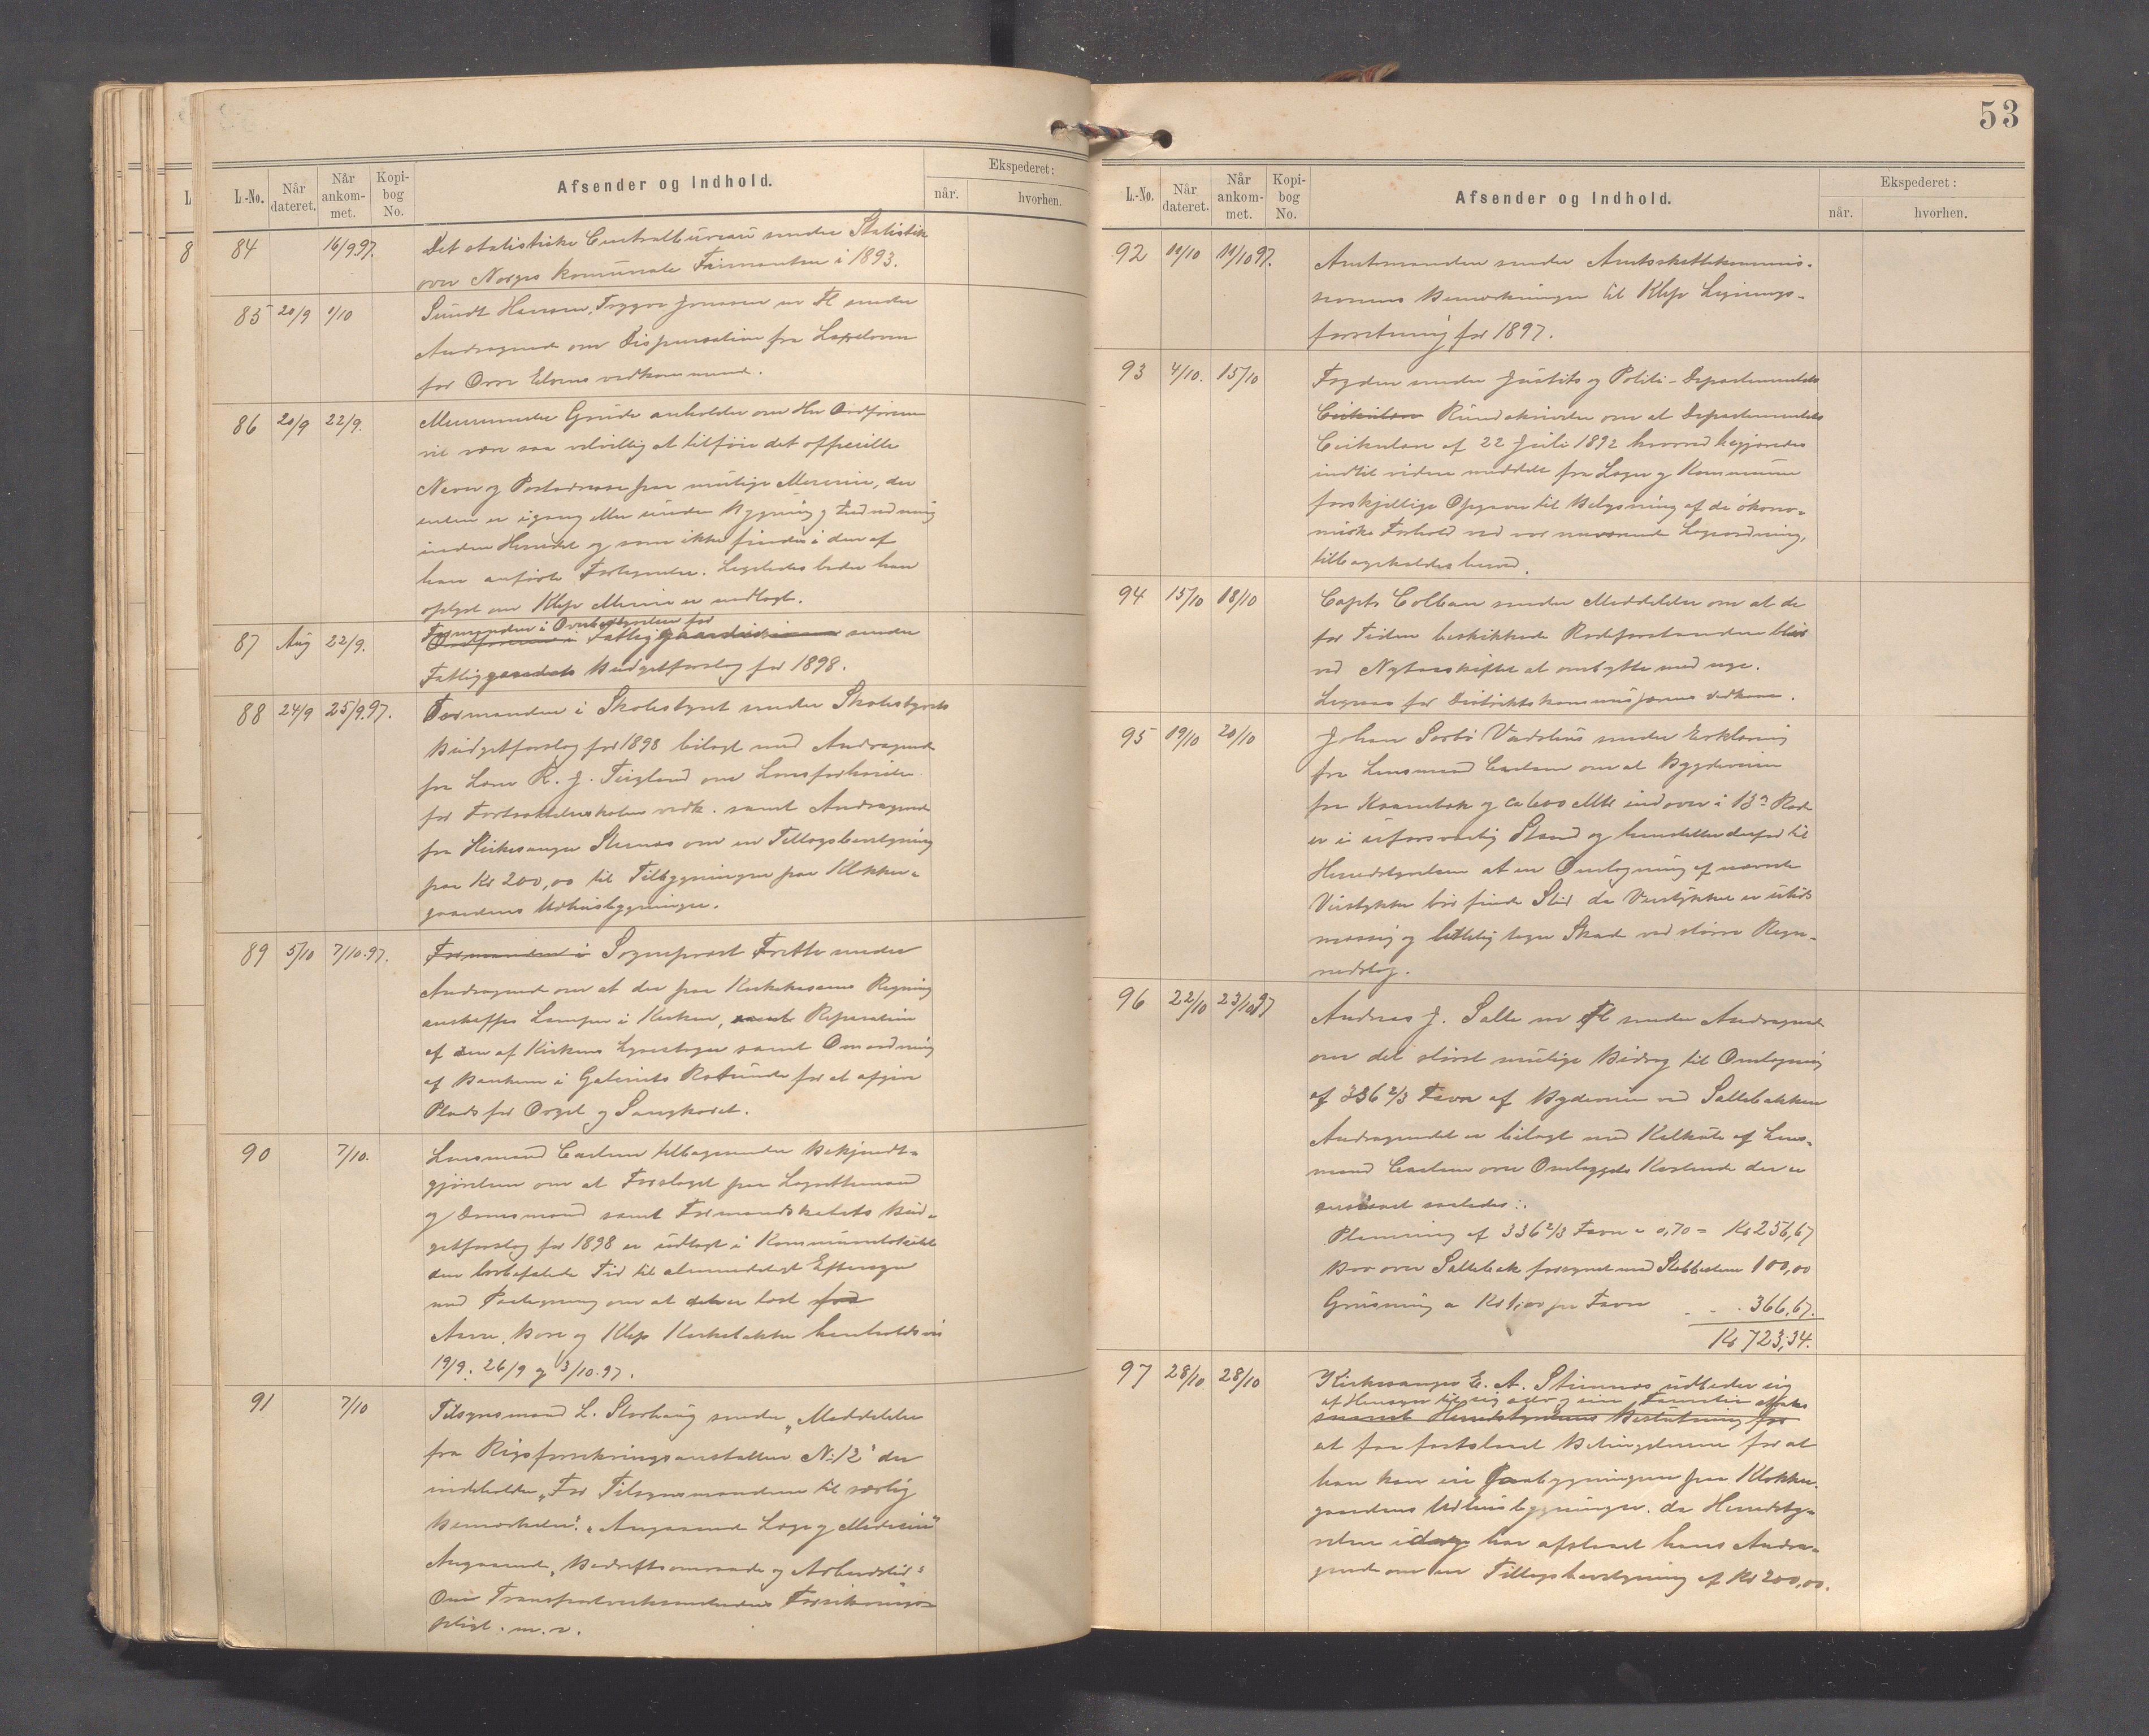 L.-No. Når dateret. Når ankommet. Kopibog No. Afsender og Indhold. Ekspederet: når. hvorhen.
84 16/9 97. Det statistiske Centralbureau sender Statistik
over Norges komunale Finantser i 1893.
85 20/9 1/10 Sundt Hansen, Trygve Jonassen m Fl sender
Andragende om Dispensation fra Laxeloven
for Orre Elvens vedkommende.
86 20/9 22/9. Grude anholder om Hr Ordføreren
vil være saa velvillig at tilføie det officielle
Navn og Postadresse paa mulige Meierier, der
enten er igang eller under Bygning og
inden Herredet og som ikke findes i den af
ham anførte Fortegnelse. Ligeledes beder han
oplyst om Klep Meieri er nedlagt.
87 Aug 22/9. Formanden i Overbestyrelsen for
Ordføreren i Fattiggaardskommissionen sender
Fattiggaardens Budgetforslag for 1898.
88 24/9 25/9.97. Formanden i Skolestyret sender Skolestyrets
Budgetforslag for 1898 bilagt med Andragende
fra Lærer R. J. Teigland om Lønsforhøielse
for Fortsættelsesskolens vedk. samt Andragende
fra Kirkesanger Stennes om en Tillægsbevilgning
paa Kr 200,00 til Tilbygningen paa Klokker-
gaardens Udhusbygninger.
89 5/10 7/10.97. Formanden i Sogneprest Fritte sender
Andragende om at der paa Kirkekassens Regning
anskaffes Lamper i Kirken, samt Reparation
af den af Kirkens Lysestager samt Omordning
af Bænkene i Galeriets for at afgive
Plads for Orgel og Sangkoret.
90 7/10. Lensmand Carlsen tilbagesender Bekjendt-
gjørelsen om at Forslaget paa Lagrettemænd
og Domsmænd samt Formandskabets Bud-
getforslag for 1898 er udlagt i Kommunelokalet
den lovbefalede Tid til almindeligt Eftersyn
med Paategning om at den er læst fra
Orre, Bore og Klep Kirkebakke henholdsvis
19/9. 26/9 og 3/10.97.
91 7/10 Tilsynsmand L. Storhaug sender „Meddelelse
fra Rigsforsikringsanstalten No 12" der
indeholder „For Tilsynsmændene til særlig
Bemærkelse". „Angaaende Læge og Medicin"
Angaaende „Bedriftsomraade og Arbeidstid"
Om Transportvirksomhedens Forsikrings-
pligt. m. v.
53
L.-No. Når dateret. Når ankommet. Kopibog No. Afsender og Indhold. Ekspederet: når. hvorhen.
92 11/10 97. Amtmanden sender Amtsskattekommis-
sionens Bemærkninger til Klep Lignings-
forretning for 1897.
93 4/10. 15/10 Fogden sender Justits og Politi-Departementets
Cirkulære Rundskrivelse om at Departementets
Cirkulære af 22 Juli 1892 hvorved begjæredes
indtil videre meddelt fra Læger og Kommuner
forskjellige Opgaver til Belysning af de økono-
miske Forhold ved vor nuværende Lægeordning,
tilbagekaldes herved.
94 15/10 18/10 Capt. Colban sender Meddelelse om at de
for Tiden beskikkede Rodeforstandere bliver
ved Nytaarsskiftet at ombytte med nye.
Ligesaa for Distriktskommissjonens vedkom.
95 19/10 20/10 Johan Serbø Vadshus sender Erklæring
fra Lensmand Carlsen om at Bygdeveien
fra Kaanebak og ca 600 Mtr indover i 13de Rode
er i uforsvarlig Stand og henstiller derfor til
Herredstyrelsen at en Omlægning af nævnte
Veistykke bør finde Sted da Veistykket er utids
mæssig og lettelig tager Skade ved større Regn-
nedslag.
96 22/10 23/10 97 Andreas J. Salte m fl sender Andragende
om det størst mulige Bidrag til Omlægning
af 336 2/3 Favn af Bygdeveien ved Saltebakken
Andragendet er bilagt med Kalkule af Lens-
mand Carlsen over Omlæggets Kostende der er
anslaaet saaledes:
Planering af 336 2/3 Favn a 0,70 = Kr 256,67
Bro over Saltebæk forsynet med Stabbestene 100,00
Grusning a Kr 1,00 pr Favn - - . 366,67.
Kr 723,34.
97 28/10 28/10 Kirkesanger E. A. Stennes udbeder sig
af Hensyn til sig selv og sin Familie
snarest Herredstyrelsens Beslutning for
at faa fastslaaet Betingelserne for at
han kan eie Paabygningen paa Klokker-
gaardens Udhusbygninger. da Herredsty-
relsen idag har afslaaet hans Andra-
gende om en Tillægsbevilgning af Kr 200,00.